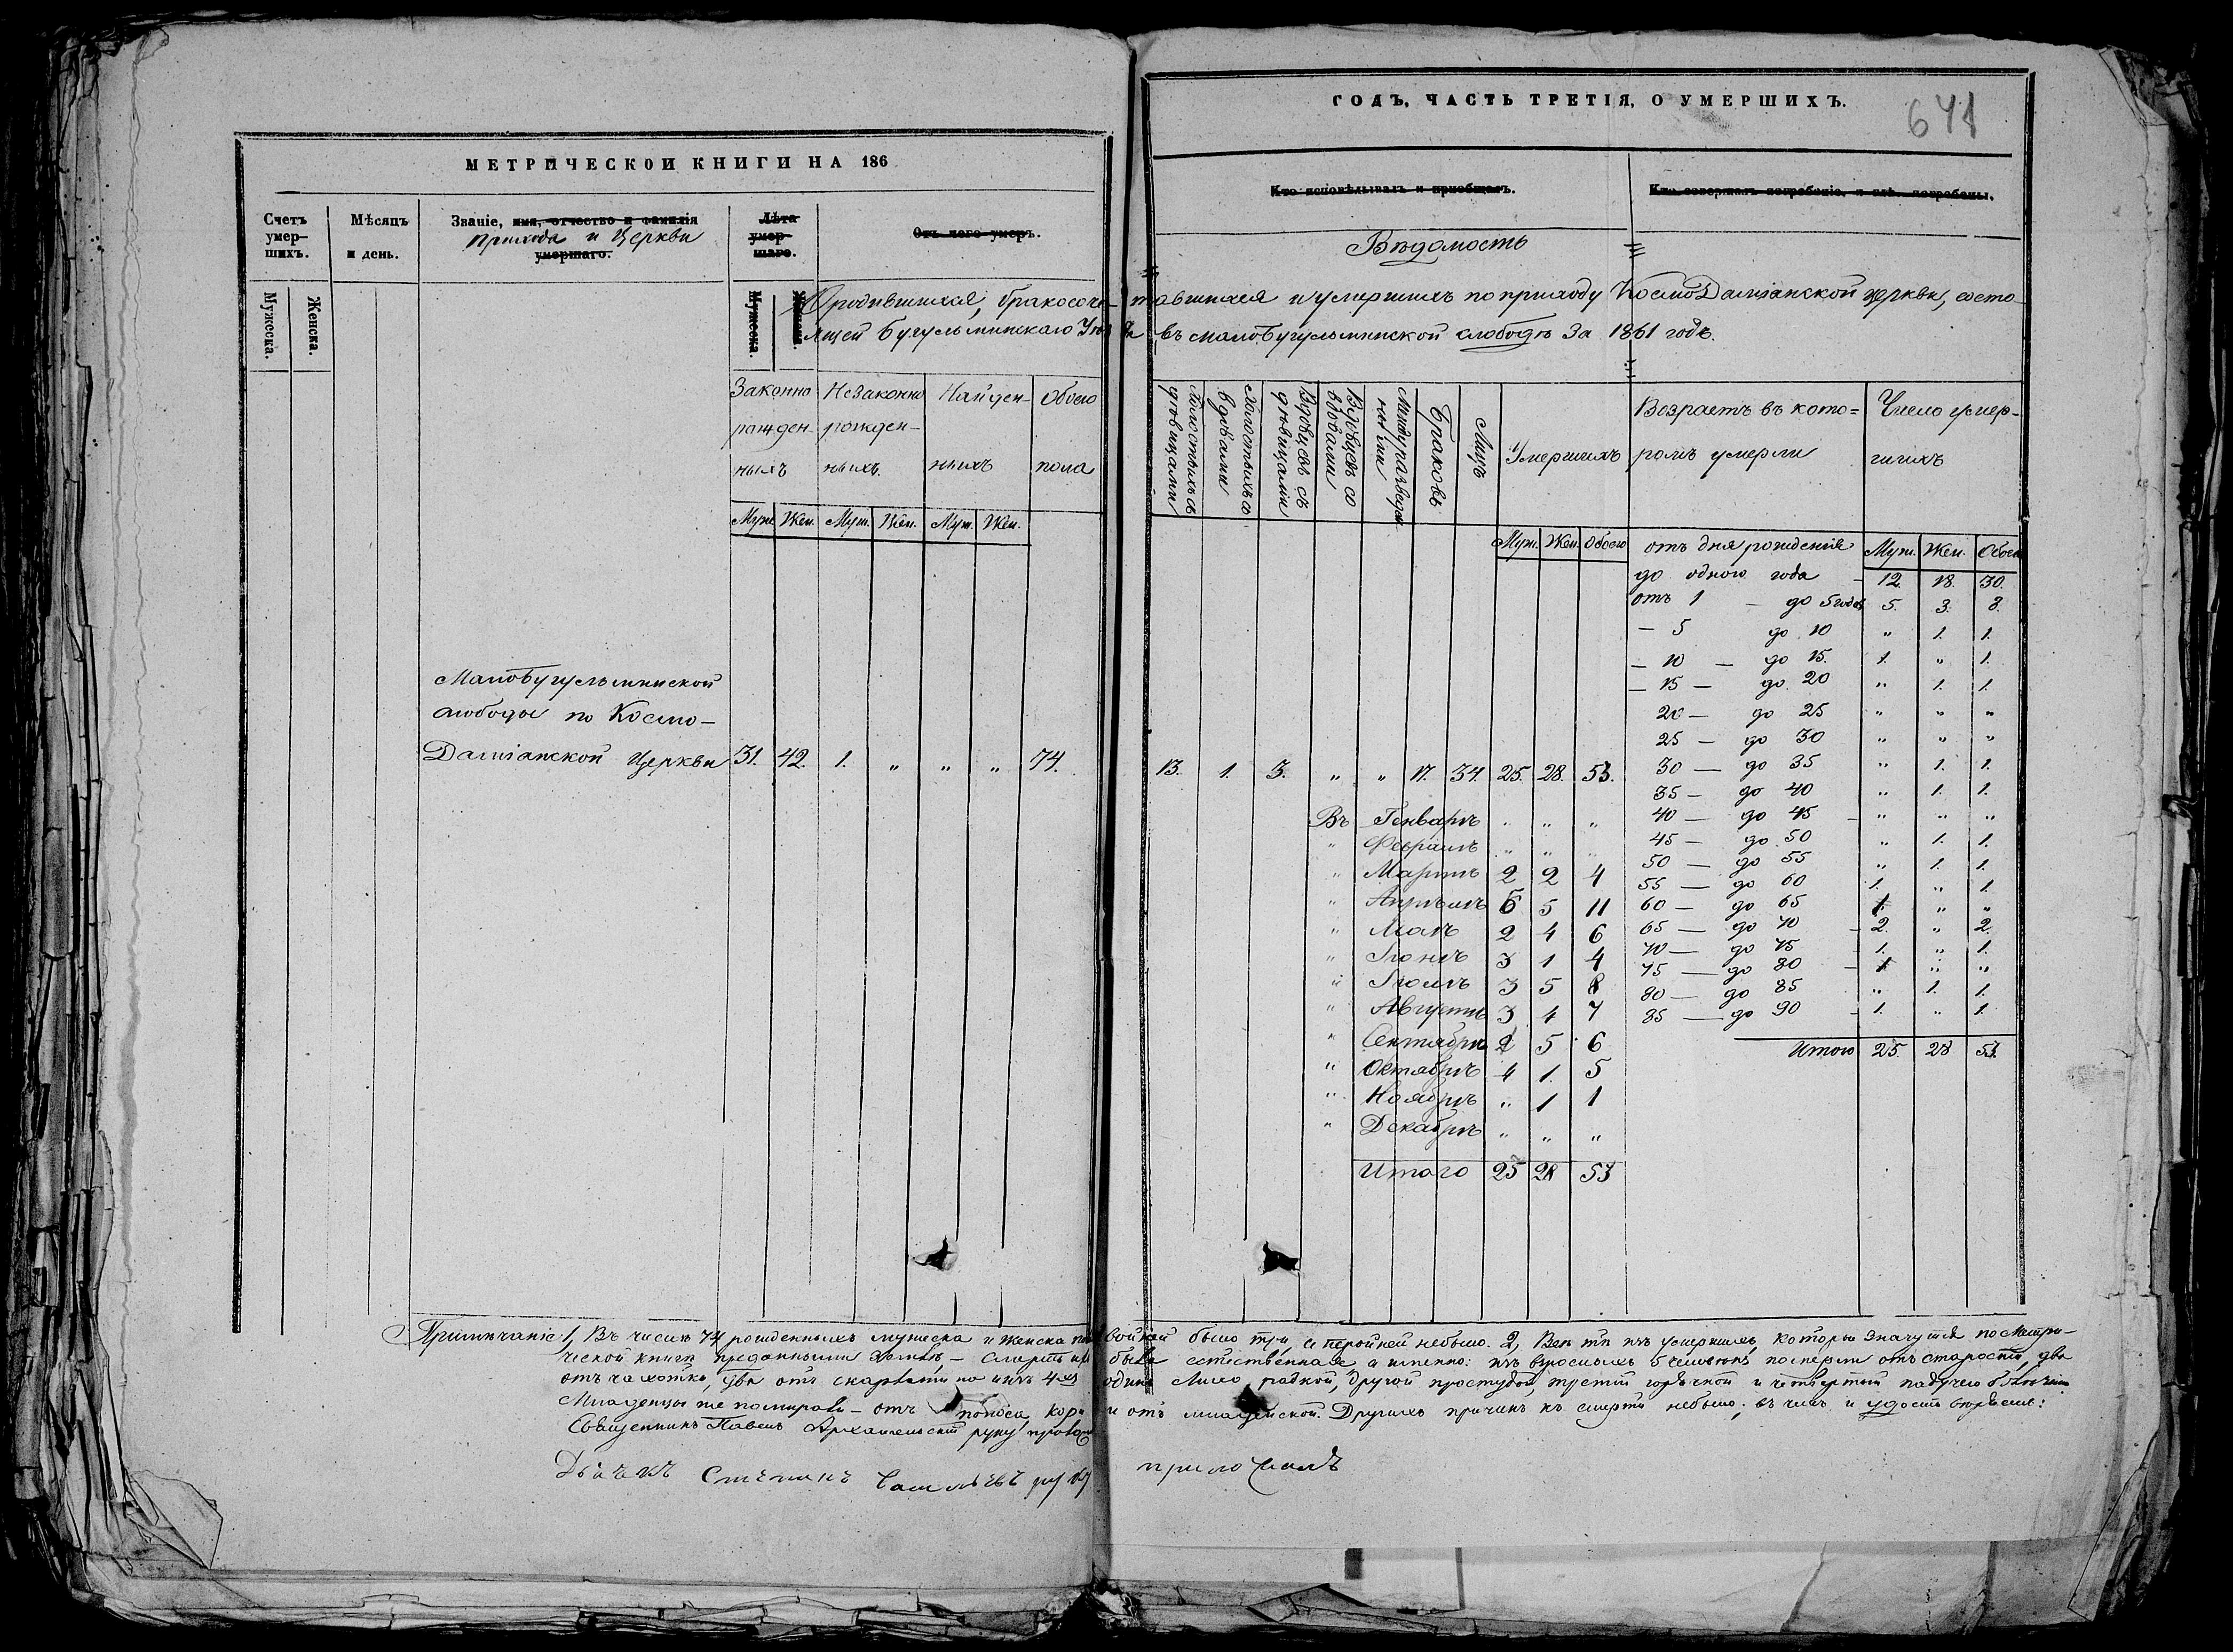 МЕТРИЧЕСКОЙ КНИГИ НА 186
ГОДЪ, ЧАСТЬ ТРЕТІЯ, О УМЕРШИХЪ.
641
Счетъ умер-шихъ.
Мужеска. Женска.
Мѣсяцъ и день.
Званіе, имя, отчество и фамилія
прихода и Церкви
умершаго.
Лѣта умер-шаго.
Мужеска. Женска.
Отъ чего умеръ.
Кто исповѣдывалъ и пріобщалъ.
Кто совершалъ погребеніе, и гдѣ погребены.
Вѣдомость
О родившихся, бракосочетавшихся и умершихъ по приходу КосмоДаміанской церкви, состо-
ящей Бугульминскаго Уѣзда въ малоБугульминской слободѣ За 1861 годъ.
Законно рожден-ныхъ
Незаконно рожден-ныхъ.
Найден-ныхъ
Обоего пола
Муж. Жен. Муж. Жен. Муж. Жен.
Холостыхъ съ дѣвицами
Холостыхъ со вдовами
Вдовцевъ съ дѣвицами
Вдовцевъ со вдовами
Браковъ
Лицъ
Умершихъ
Муж. Жен. Обоего
Возрастъ въ кото=ромъ умерли
Число умер-шихъ
Муж. Жен. Обоего
МалоБугульминской
слободы по Космо-
Даміанской Церкви 31. 42. 1. " " " 74.
13. 1. 3. " " 17. 34. 25. 28. 53.
Въ Генварѣ " " "
" Февралѣ " " "
" Мартѣ 2 2 4
" Апрѣлѣ 6 5 11
" Маѣ 2 4 6
" Іюнѣ 3 1 4
" Іюлѣ 3 5 8
" Августѣ 3 4 7
" Сентябрѣ 5 6
" Октябрѣ 4 1. 5
" Ноябрѣ " 1 1
" Декабрѣ " " "
Итого 25 28 53
отъ дня рожденія
до одного года - 12. 18. 30.
отъ 1 - до 5 годовъ 5. 3. 8.
- 5 до 10 " 1. 1.
- 10 - до 15. 1. " 1.
- 15 - до 20 " 1. 1.
20 - до 25 " " "
25 - до 30 " " "
30 - до 35 " 1. 1.
35 - до 40 " 1. 1.
40 - до 45 - " " "
45 - до 50 " 1. 1.
50 - до 55 " 1. 1.
55 - до 60 1. " 1.
60 - до 65 1. " "
65 - до 70 - 2. " 2.
70 - до 75 1. " 1.
75 - до 80 - 1 " "
80 - до 85 " 1. 1.
85 - до 90 - 1. " 1.
Итого 25. 28 53.
Примѣчаніе 1, Въ числѣ 74 рожденныхъ мужеска и женска пола двойней было три, а тройней небыло. 2, Всѣ тѣ изъ умершихъ, которые значутся по Метри-
ческой книгѣ преданными землѣ - смерть ихъ была естественная а именно: изъ взрослыхъ 5 человѣкъ померли отъ старости, два
отъ чахотки, два отъ и изъ 4хъ одинъ другой простудой, третій горячкой и четвертый падучею болѣзнію
Младенцы же помирали - отъ поноса, кори и отъ младенской. Другихъ причинъ къ смерти небыло; въ чемъ и удостовѣряемъ:
Священникъ Павелъ Архангельскій руку приложилъ
Дьячекъ Степанъ руку приложилъ